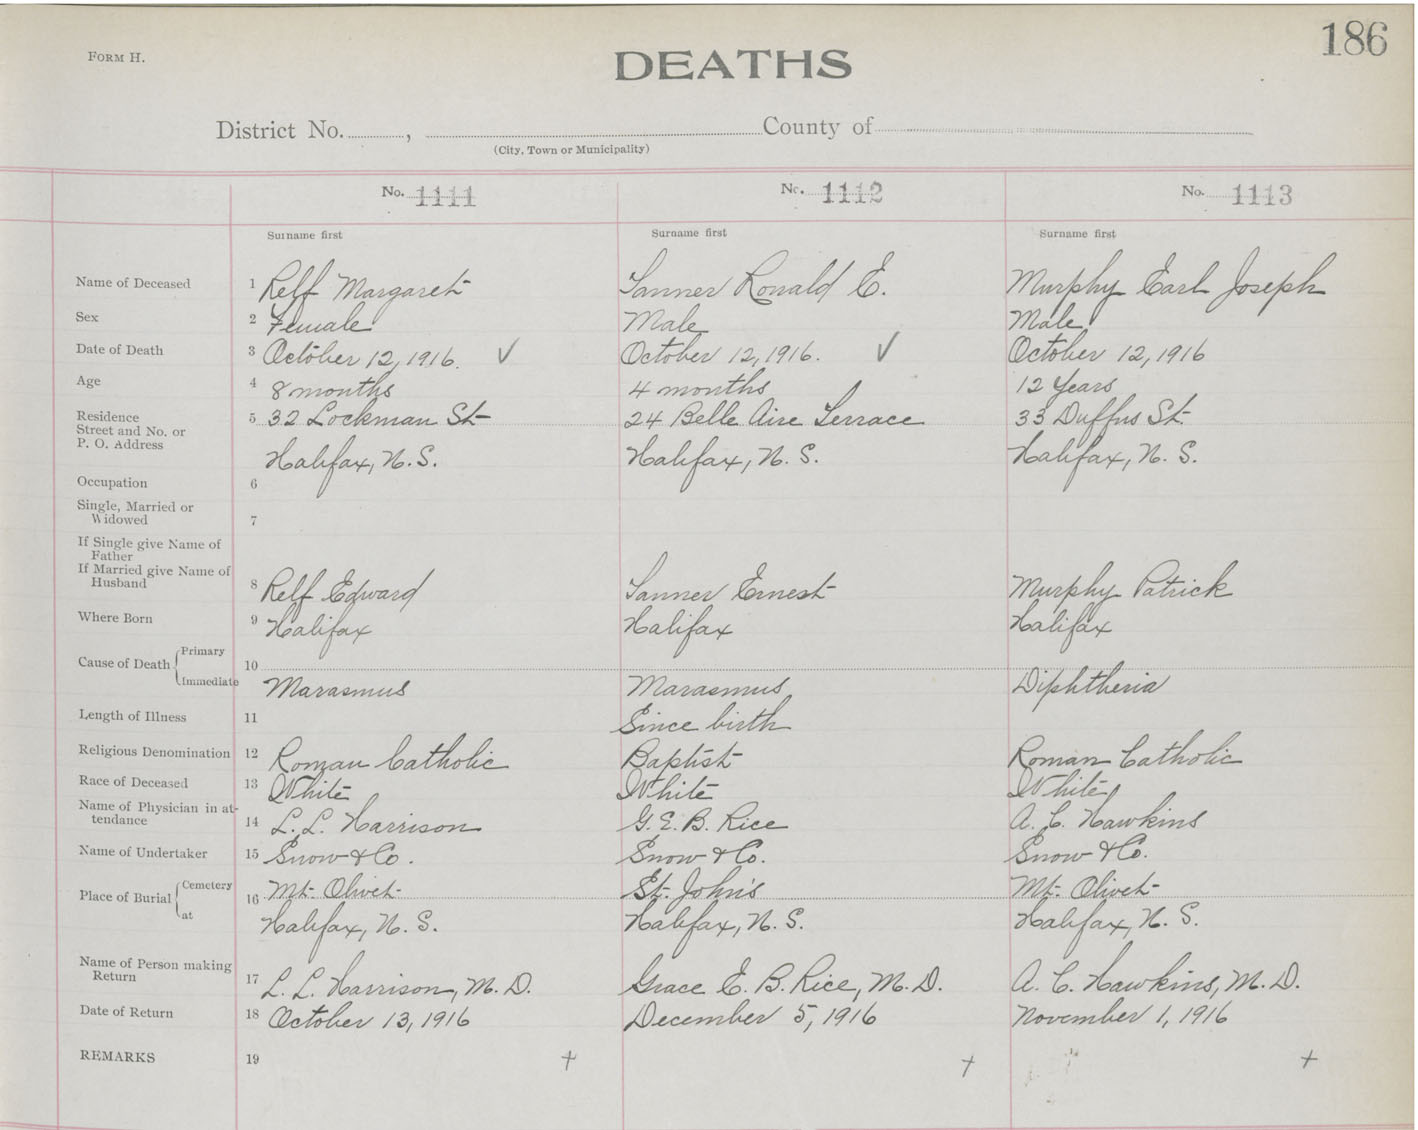 186
FORM H.
DEATHS
District No. , County of
(City, Town or Municipality)
No. 1111 No. 1112 No. 1113
Surname first Surname first Surname first
Name of Deceased 1 Relf Margaret Tanner Ronald E. Murphy Earl Joseph
Sex 2 Female Male Male
Date of Death 3 October 12, 1916. ✓ October 12, 1916. ✓ October 12, 1916
Age 4 8 months 4 months 12 Years
Residence 5 32 Lockman St 24 Belle Aire Terrace 33 Duffus St.
Street and No. or
P. O. Address
Halifax, N.S. Halifax, N. S. Halifax, N. S.
Occupation 6
Single, Married or
Widowed 7
If Single give Name of
Father
If Married give Name of
Husband 8 Relf Edward Tanner Ernest Murphy Patrick
Where Born 9 Halifax Halifax Halifax
Primary
Cause of Death 10
Immediate Marasmus Marasmus Diphtheria
Length of Illness 11 Since birth
Religious Denomination 12 Roman Catholic Baptist Roman Catholic
Race of Deceased 13 White White White
Name of Physician in at-
tendance 14 L. L. Harrison G. E. B. Rice A. C. Hawkins
Name of Undertaker 15 Snow & Co. Snow & Co. Snow & Co.
Cemetery Mt. Olivet St. John's Mt. Olivet
Place of Burial 16
at Halifax, N. S. Halifax, N. S. Halifax, N. S.
Name of Person making
Return 17 L. L. Harrison, M. D. Grace E. B. Rice, M. D. A. C. Hawkins, M. D.
Date of Return 18 October 13, 1916 December 5, 1916 November 1, 1916
REMARKS 19 + + +